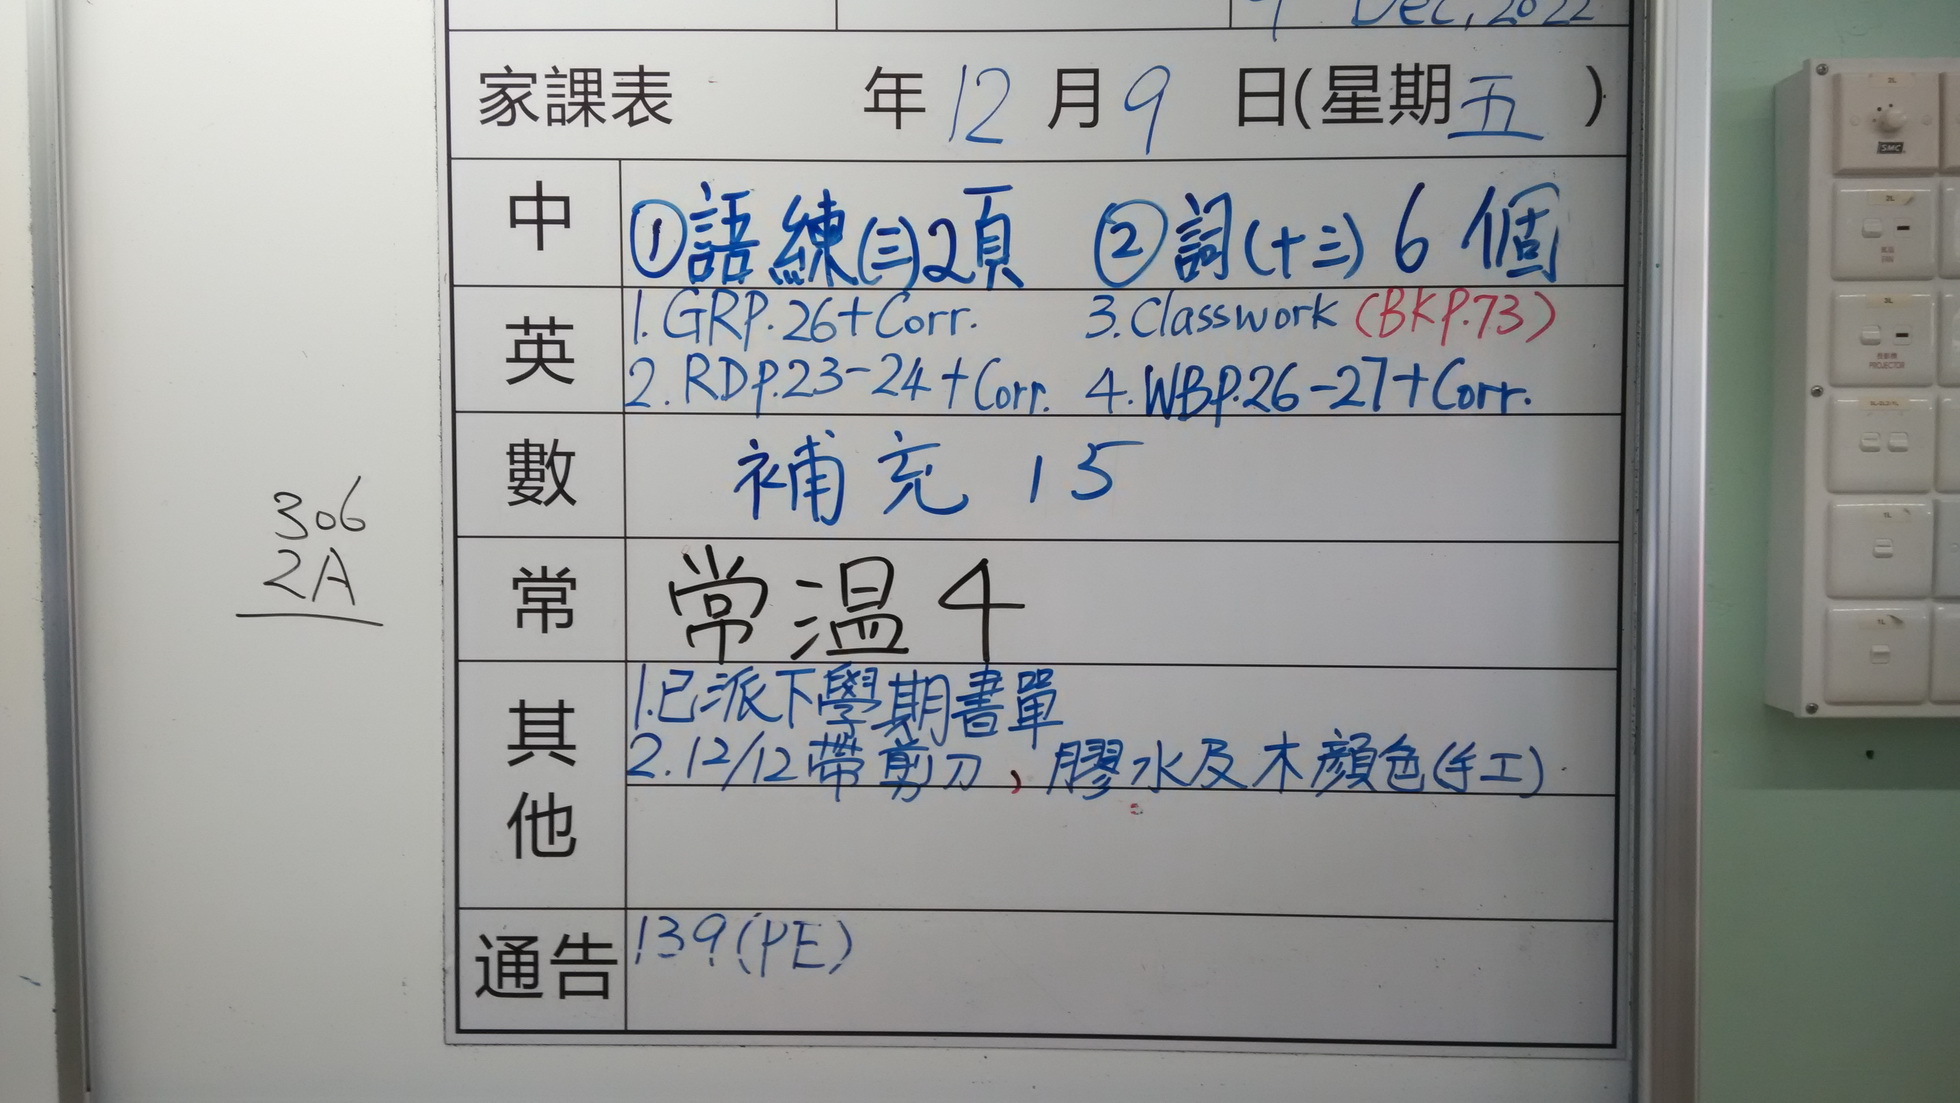 9 Dec, 2022
家課表 年 12 月 9 日(星期 五 )
中 ①語練(三)2頁 ②詞(十三) 6 個
英 1. GRP.26+Corr. 3. Classwork (BKP.73)
2. RDP.23-24+Corr. 4. WBP.26-27+Corr.
數 補充 15
306
2A
常 常温4
其他 1.已派下學期書單
2. 12/12 帶剪刀，膠水及木顏色(手工)
通告 139(PE)
SMC
PROJECTOR